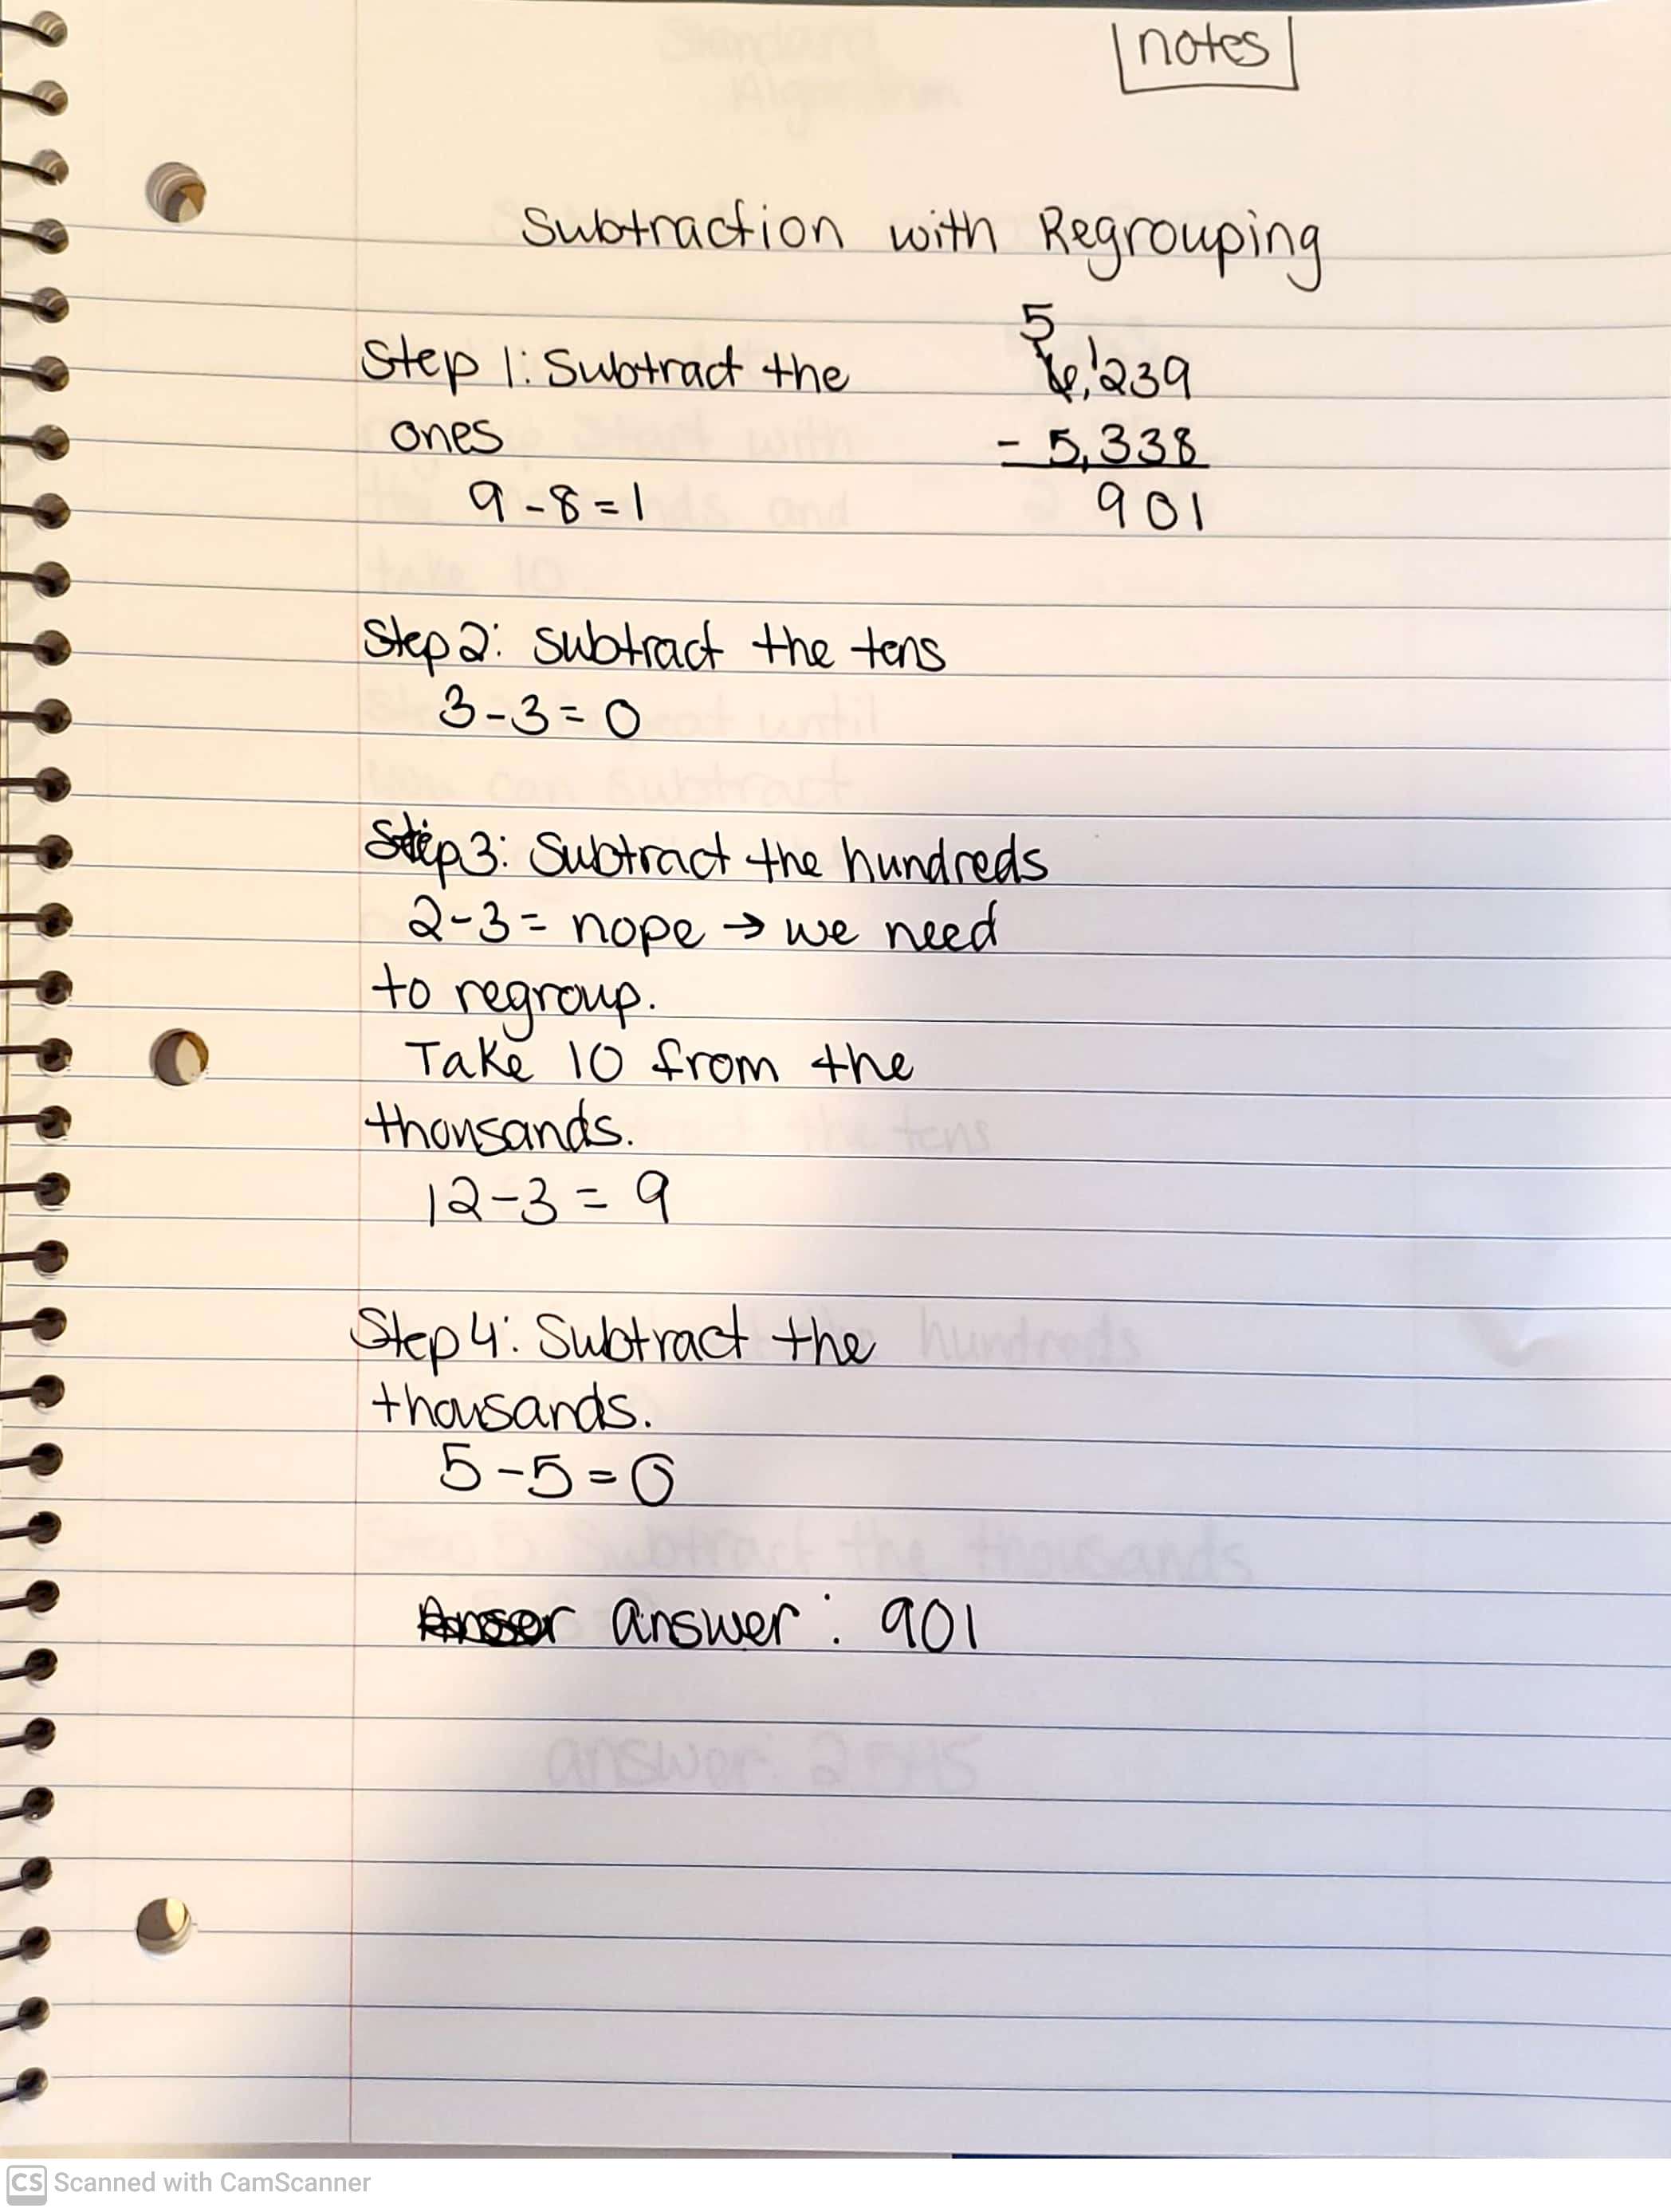 notes
Subtraction with Regrouping
Step 1: Subtract the
ones
9-8=1
5
6,1239
- 5,338
901
Step 2: subtract the tens
3-3=0
Step 3: Subtract the hundreds
2-3= nope → we need
to regroup.
Take 10 from the
thousands.
12-3 = 9
Step 4: Subtract the
thousands.
5-5=0
answer: 901
answer: 2545
CS Scanned with CamScanner